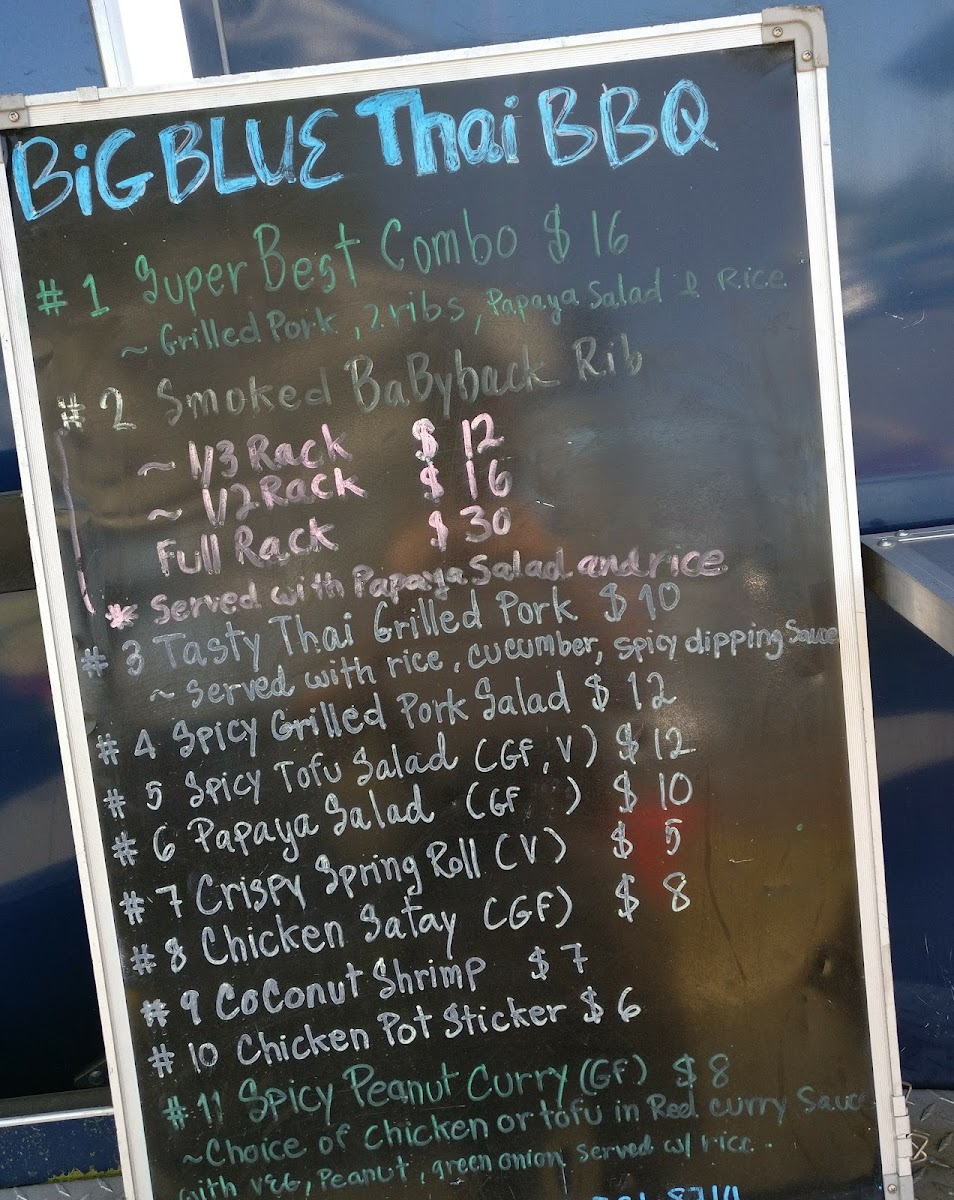 BiG BLUE Thai BBQ
# 1 Super Best Combo $ 16
~ Grilled Pork, 2 ribs, Papaya Salad & Rice
# 2 Smoked BaByback Rib
~ 1/3 Rack $ 12
~ 1/2 Rack $ 16
Full Rack $ 30
* Served with Papaya Salad and rice
# 3 Tasty Thai Grilled Pork $ 10
~ Served with rice, cucumber, spicy dipping Sauce
# 4 Spicy Grilled Pork Salad $ 12
# 5 Spicy Tofu Salad (GF, V) $ 12
# 6 Papaya Salad (GF ) $ 10
# 7 Crispy Spring Roll (V) $ 5
# 8 Chicken Satay (GF) $ 8
# 9 CoConut Shrimp $ 7
# 10 Chicken Pot Sticker $ 6
# 11 Spicy Peanut Curry (GF) $ 8
~ Choice of Chicken or tofu in Red curry Sauce
with VEG, Peanut, green onion served w/ rice.